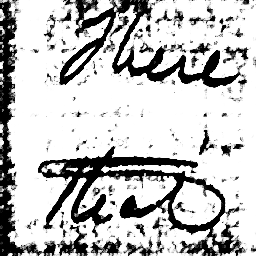 There
That